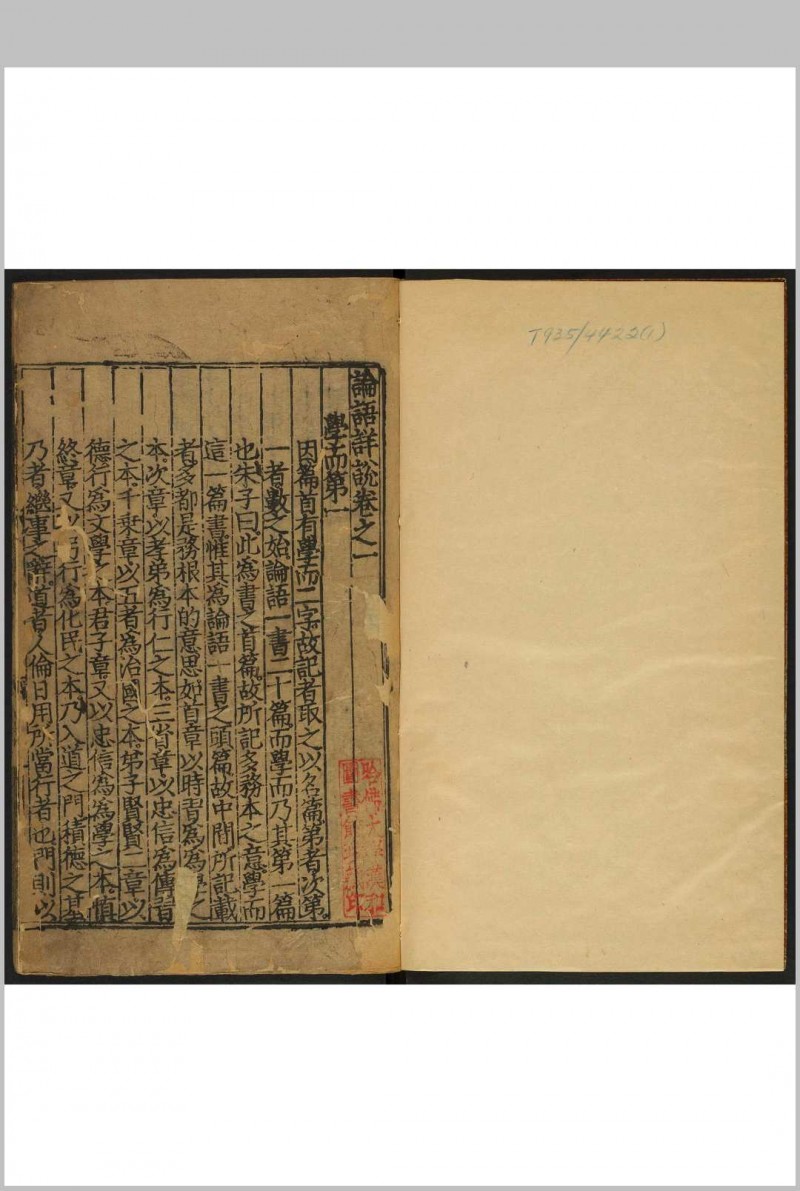 論語詳說卷之一
學而第一
因篇首有學而二字故記者取之以名篇第者次第
一者數之始論語一書二十篇而學而乃其第一篇
也朱子曰此為書之首篇故所記多務本之意學而
這一篇書惟其為論語一書之頭篇故中間所記載
者多都是務根本的意思如首章以時習為為學之
本次章以孝弟為行仁之本三省章以忠信為傳習
之本千乗章以五者為治國之本弟子賢賢二章以
德行為文學之本君子章又以忠信為為學之本慎
終章又以躬行為化民之本乃入道之門積德之基
乃者繼事之辭道者人倫日用所當行者也門則以
哈佛大學漢和
圖書館珍藏印
T935/4422(1)